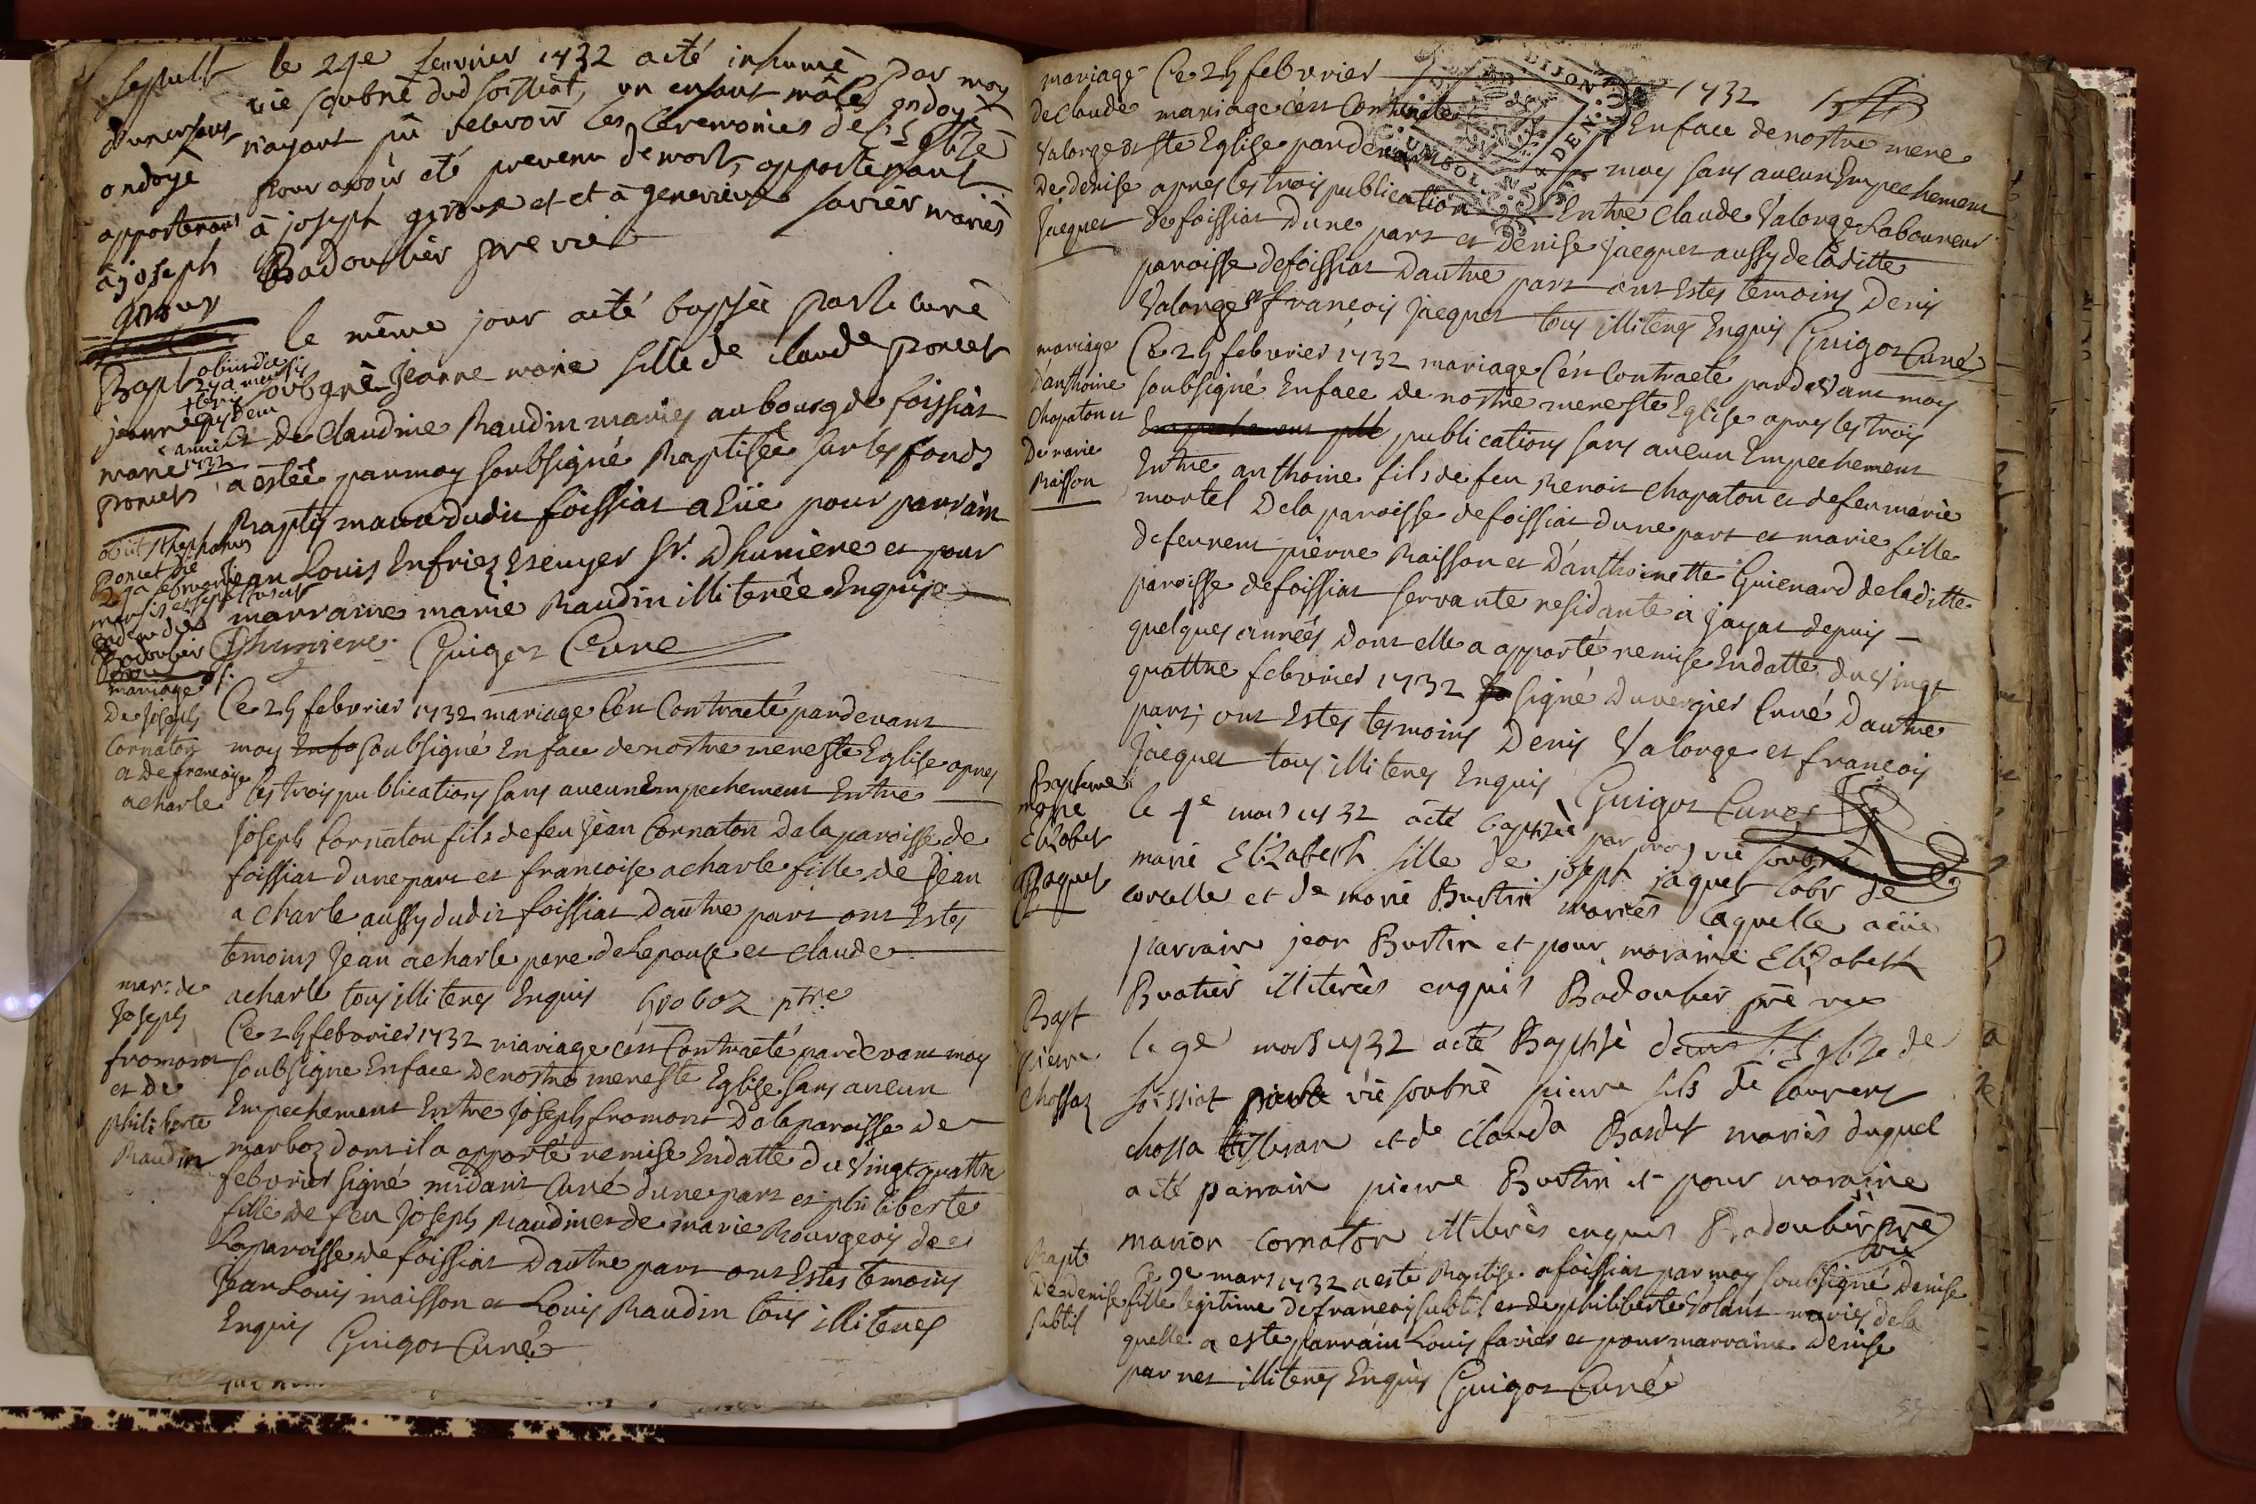 Sepult
d'un enfant
ondoyé
appartenant
à joseph
giroux
le 24e fevrier 1732 a été inhumé par moy
vie soubné dud foissiat, un enfant mâle ondoyé
n'ayant pû recevoir les Ceremonies de l'Eglize
pour avoir été prevenu de mort, appartenant
à joseph giroux et et à genevieve favier mariés
Badoubier pre vic
Bapt
jeanne
marie
poncet
obiit die
annis
1732
le même jour a été baptisée par le curé
soubgné Jeanne marie fille de claude poncet
et De Claudine Raudin mariés au bourg de foissiat
a estée par moy soubsigné Baptisée sur les fonds
Baptismaux dudit foissiat a Eüe pour parrain
Jean Louis Enfriez Escuyer Sr. Dhuniere et pour
marraine marie Raudin illiterée Enquise
Dhuniere Guigot Curé
obiit stephanus
Poncet die
Badoubier
mariage
De Joseph
Cornaton
et de francoise
acharle
Ce 25 febvrier 1732 mariage C'est Contracté pardevant
moy Enfa soubsigné Enface de nostre mere ste Eglise apres
les trois publications sans aucun Empechement Entre
joseph Cornaton fils de feu Jean Cornaton De la paroisse de
foissiat dune part et francoise acharle fille de Jean
acharle aussy dudit foissiat Dautre part ont Estes
temoins Jean acharle pere de Lepouse et Claude
acharle tous illiteres Enquis Groboz ptre
mar: de
Joseph
fromont
et de
philiberte
Raudin
Ce 25 febvrier 1732 mariage C'est Contracté pardevant moy
soubsigne Enface De nostre mere ste Eglise sans aucun
Empechement Entre Joseph fromont De la paroisse de
marboz dont il a apporté remise Endatte du vingt quattre
febvrier signé midant Curé dune part et philiberte
fille de feu Joseph Raudin et de marie Bourgeois de
La paroisse de foissiat Dautre part ont Estes temoins
Jean Louis maisson et Louis Raudin tous illiteres
Enquis Guigot Curé
1732
mariage
de Claude
Valorge et
De denise
Jacquet
Ce 25 febvrier
mariage C'est Contracté Enface de nostre mere
ste Eglise pardevant moy sans aucun Empechement
apres les trois publications Entre Claude Valorge Laboureur
de foissiat Dune part et Denise Jacquet aussy de laditte
paroisse de foissiat Dautre part ont Estes temoins Denis
Valorge et françois Jacquet tous illiteres Enquis Guigot Curé
mariage
Danthoine
Chapaton et
De marie
Raisson
Ce 25 febvrier 1732 mariage C'est Contracté pardevant moy
soubsigné Enface de nostre mere ste Eglise apres les trois
Empechement publications sans aucun Empechement
Entre anthoine fils de feu Benoit Chapaton et de feu marie
mortel De la paroisse de foissiat dune part et marie fille
de feurent pierre Raisson et D'anthoinette Guienard de laditte
paroisse de foissiat servante residante à jayat depuis
quelques années Dont elle a apporté remise Endatte du vingt
quattre febvrier 1732 signé Duvergier Curé Dautre
part; ont Estes tesmoins Denis Valorge et francois
Jacquet tous illiteres Enquis Guigot Curé
Baptême
marie
Elizabet
Jaquet
le 4e mars 1732 a été baptisée par moy vic soubné
marie Elizabeth fille de joseph jaquet labr de
corcelle et de marie Burtin mariés laquelle a eüe
parrain jean Burtin et pour maraine Elizabeth
Buatier illiterées enquis Badoubier pre vic
Bapt
pierre
Chossaz
le 9e mars 1732 a été Baptisé dans l'Eglize de
foissiat vic soubné pierre fils de laurent
chossa et de clauda Bardet mariés duquel
a été parrain pierre Burtin et pour maraine
marion cornaton illiterés enquis Badoubier pre
vic
Bapt
De denise
subtil
Ce 9e mars 1732 a esté Baptise a foissiat par moy soubsigné denise
fille legitime de francois subtil et de philiberte Volant mariés de la
quelle a este parrain Louis favier et pour marraine denise
parnet illiteres Enquis Guigot Curé